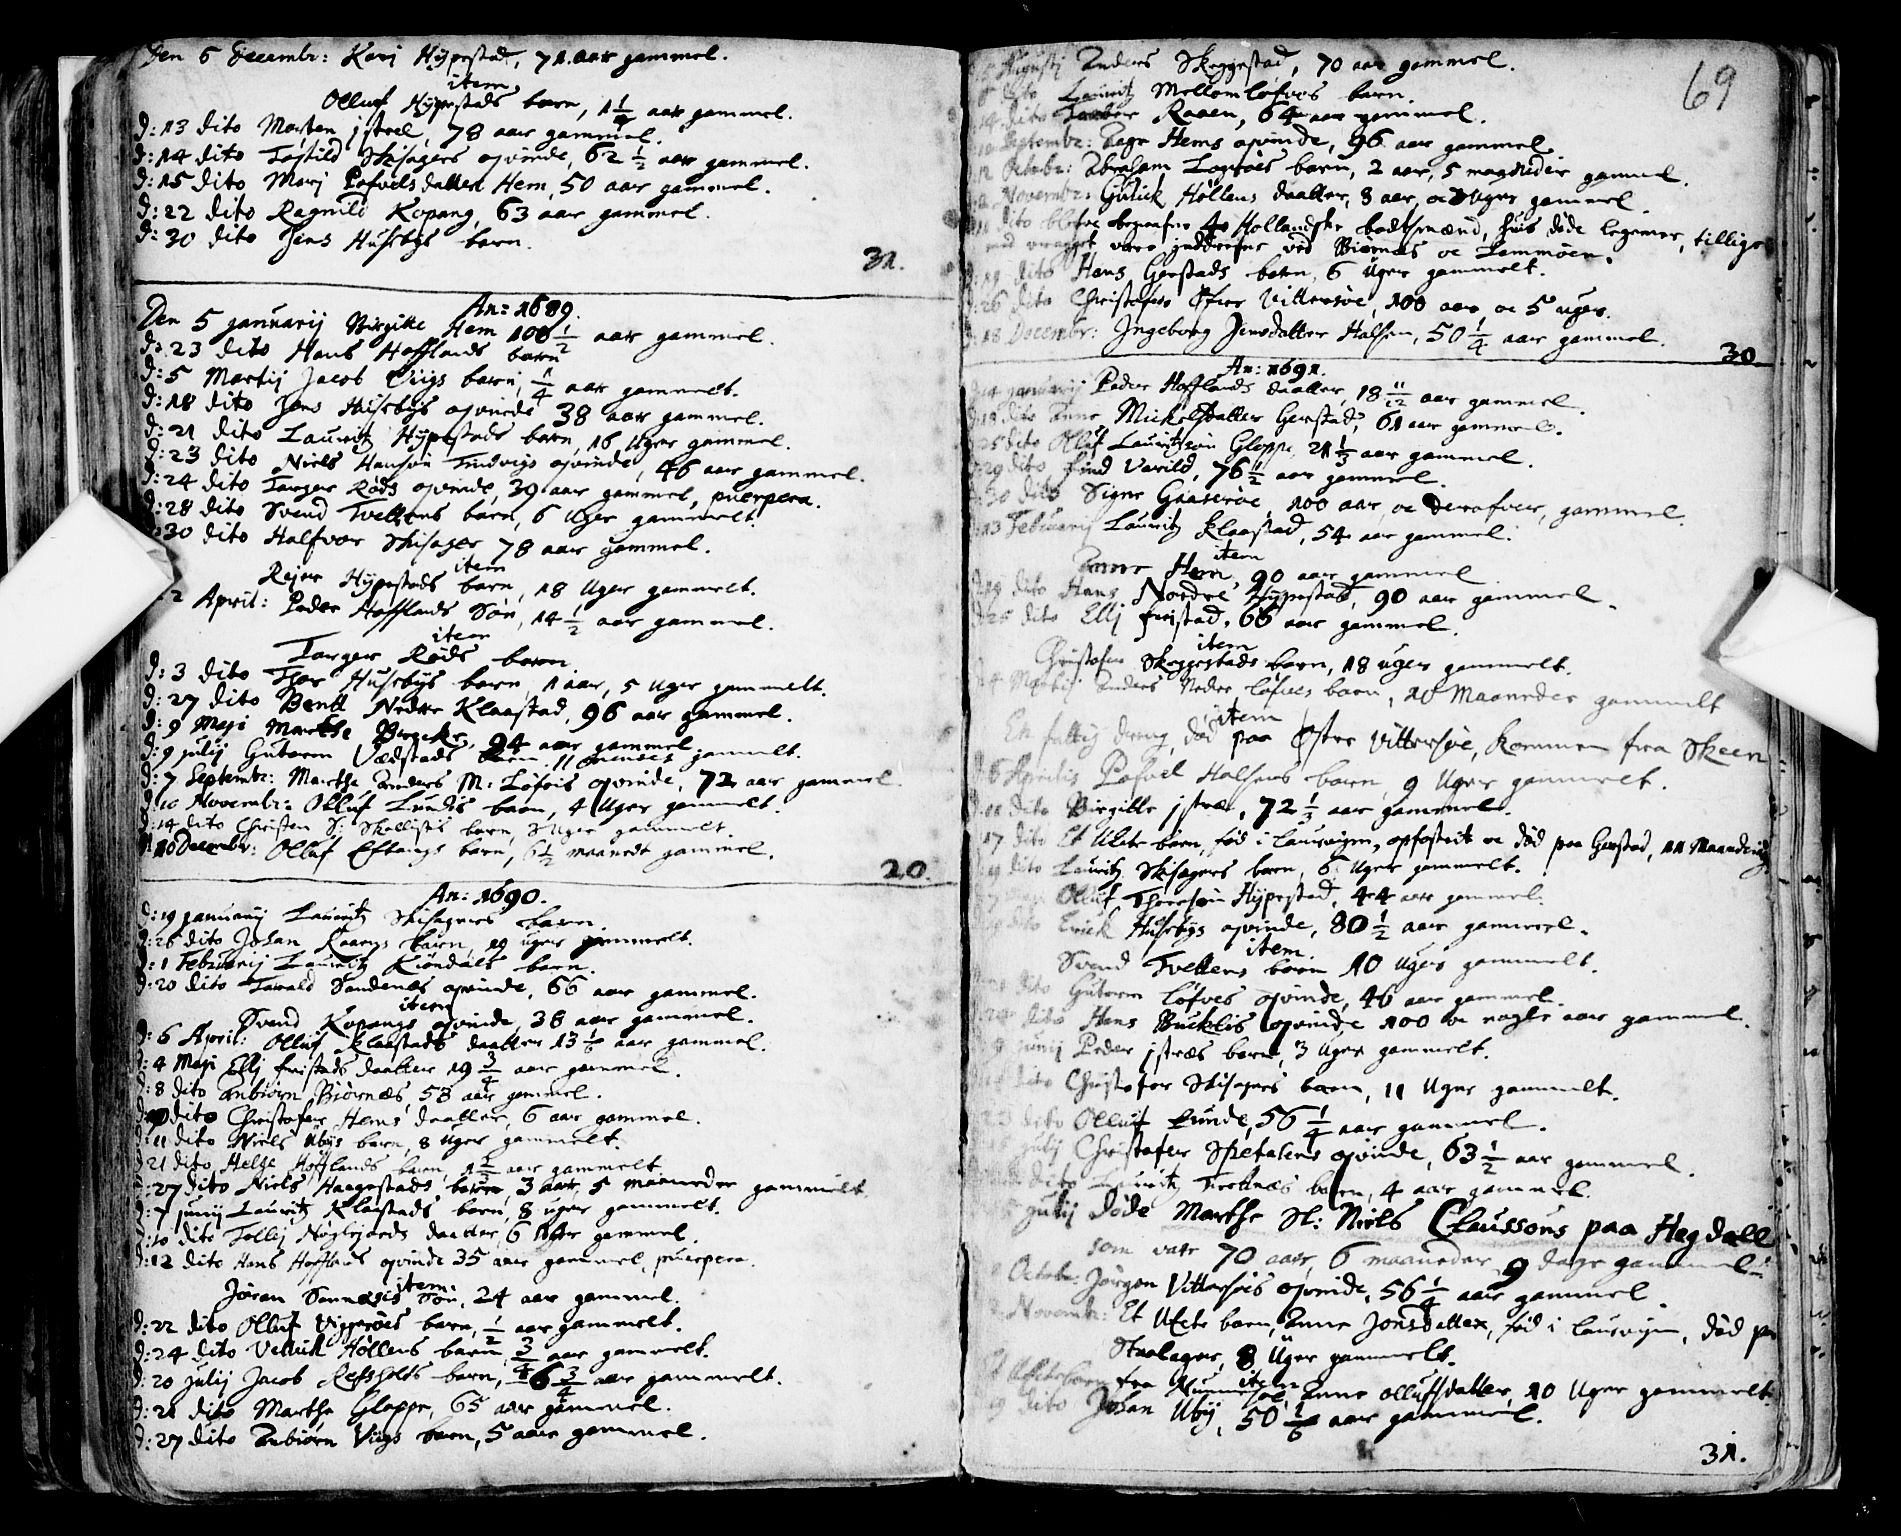 Den 6 Decembr: Karj Hÿpestad, 71. aar gammel.
item,
Olluf Hÿpestads barn, 1 1/4 aar gammel.
d: 13 dito Morten jstrel, 78 aar gammel.
d: 14 dito Schisagers qvinde, 62 1/2 aar gammel.
d: 15 dito Marj Pofvels datter Hem, 50 aar gammel.
d: 22 dito Ragnild Kopang, 63 aar gammel.
d: 30 dito Jens Husebÿs barn.
31.
An: 1689.
Den 5 januarij Birgitte Hem 100 1/2 aar gammel.
d: 23 dito Hans Hofflands barn
d: 5 Martij Jacob Viigs barn, 1/4 aar gammelt.
d: 18 dito Jens Husebÿs qvinde 38 aar gammel.
d: 21 dito Lauritz Hÿpestads barn, 16 Uger gammel.
d: 23 dito Niels Hansøn Tindvigs qvinde, 46 aar gammel.
d: 24 dito Targer Røds qvinde, 39 aar gammel, puerpera.
d: 28 dito Svend Tvettens barn, 6 Uger gammelt.
d: 30 dito Halfvor Skisager 78 aar gammel.
item
Rejer Hÿpestads barn, 18 Uger gammelt.
2 April: Peder Hofflands Søn, 14 1/2 aar gammel.
item
Targer Røds barn.
d: 3 dito Thor Husebÿs barn 1 aar, 5 Uger gammelt.
d: 27 dito Bent Nedre Klaastad, 96 aar gammel.
d: 9 Maji Marthe 94 aar gammel
d: 9 julij Gutorm Vedstads barn 11 menses gammelt.
d: 7 Septembr: Marthe Anders M: Løfvis qvinde, 72 aar gammel
d: 10 Novembr: Olluf Lundis barn, 4 Uger gammelt.
d: 14 dito Christen S: barn, Uger gammelt.
d: 10 Decembr: Olluf Eftangs barn, 6 1/2 maanedt gammel.
20.
An: 1690.
d: 19 januarij Lauritz Skisagers barn.
d: 26 dito Johan Raaens barn, 19 uger gammelt.
d: 1 Februarij Lauritz barn.
d: 20 dito Sandenæs qvinde, 66 aar gammel.
item
Svend Kopangs qvinde, 38 aar gammel.
d: 6 April: Olluf Klaastads daatter 13 1/6 aar gammel.
d: 4 Maji Ellj fristads daatter 19 3/4 aar gammel.
d: 8 dito Anbiørn Biørnæs, 58 aar gammel.
d: 10 dito Christofer Hems daatter, 6 aar gammel.
d: 11 dito Niels Ubÿs barn, 8 Uger gammelt.
21 dito Helge Hofflands barn, aar gammelt
d: 27 dito Niels Haagestads barn, 3 aar, 5 maaneder gammelt
d: 7 junij Lauritz Klaastads barn, 8 uger gammelt.
d: 10 dito daatter, 6 gammel.
d: 12 dito Hans Hofflands qvinde 35 aar gammel, puerpera.
item.
Jøran Søn, 24 aar gammel.
d: 22 dito Olluf barn, 1/2 aar gammelt.
d: 24 dito Høllens barn 3/4 aar gammelt.
d: 20 julij Jacob Refsholts barn, 6 3/4 aar gammelt.
d: 21 dito Marthe Gloppe, 65 aar gammel.
d: 27 dito Anbiørn Viigs barn, 5 aar gammel.
69
Augustj Anders Skeggestad, 70 aar gammel.
dito Lauritz Mellomløfves barn.
14 dito Raaen, 64 aar gammel.
Septembr: Aage Hems qvinde, 96 aar gammel.
12 Octobr: Abraham barn, 2 aar, 5 maaneder gammel.
Novembr: Gulich Høllens daatter, 8 aar, oc Uger gammel.
dito blefve begrafne 40 Hollandske bodtsmænd, huis døde legemer, tillige
med vraget vare inddrefne ved Biørnæs oc Lammøen.
19 dito Hans Gerstads barn, 6 Uger gammelt.
26 dito Christofer Øfver Vittersøe, 100 aar oc 5 uger.
18 Decembr: Ingeborg Jensdatter Halsen, 50 1/4 aar gammel.
30
An: 1691.
14 januarij Peder Hofflands daatter, 18 11/12 aar gammel.
18 dito Anne Mickelsdatter Gerstad, 61 aar gammel.
25 dito Olluf Lauritzsøn Gloppe, 21 1/3 aar gammel.
29 dito find Varild, 76 1/2 aar gammel.
30 dito Signe Gaaserøe, 100 aar, oc derofver, gammel.
13 Februarij Lauritz Klaastad, 54 aar gammel.
item
Anne Hem, 90 aar gammel
19 dito Hans Nordre Hÿpestad, 90 aar gammel.
25 dito Ellj fristad, 66 aar gammel.
item
Christofer Skeggestads barn, 18 uger gammelt.
4 Martij Anders Nedre løfves barn, 10 Maaneder gammelt
item
En fattig dreng, død paa Østre Vittersøe, kommen fra Skeen
6 Aprilis Pofvel Halsens barn 9 Uger gammelt.
11 dito Birgitte jstre, 72 1/3 aar gammel.
17 dito Et Uckte barn, fød i Laurvigen, opfostrit oc død paa Gerstad, 11 Maaneder
dito Lauritz Skisagers barn, 6 Uger gammelt.
Olluf Thoresøn Hÿpestad, 44 aar gammel.
dito Erick Husebÿs qvinde, 80 1/2 aar gammel.
item.
Svend Tvettens barn 10 Uger gammelt.
dito Gutorm løfves qvinde, 46 aar gammel.
24 dito Hans qvinde 100 oc nogle aar gammel.
9 junij Peder jstres barn, 3 Uger gammelt.
dito Christofer Skisagers barn, 11 Uger gammelt.
23 dito Olluf Lunde, 56 1/4 aar gammel.
julij Christofer Spetalens qvinde, 63 1/2 aar gammel.
dito Lauritz barn, 4 aar gammel.
julij døde Marthe Sl: Niels Claussøns paa Hegdall
som var 70 aar, 6 maaneder 9 dage gammel.
Octobr: Jørgen Vittersøes qvinde, 56 1/4 aar gammel
Novembr: Et Uckte barn, Anne Jonsdatter, fød i laurvigen, død paa
8 Uger gammelt.
item
fra Anne Ollufsdatter, 10 Uger gammelt.
19 dito Johan Ubÿ, 50 1/6 aar gammel.
31.